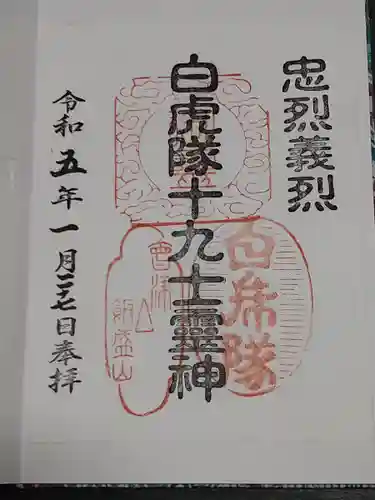 忠烈義烈
白虎隊十九士靈神
令和五年一月二七日奉拝
白乕隊
會津
飯盛山